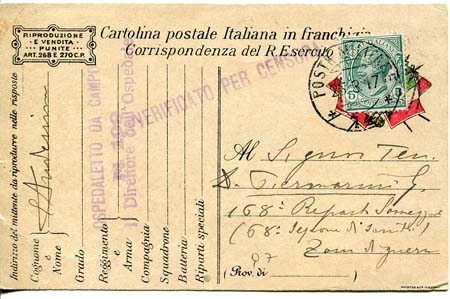 RIPRODUZIONE
E VENDITA
PUNITE
ART. 268 E 270 C.P.
Cartolina postale Italiana in franchigia
Corrispondenza del R. Esercito
VERIFICATO PER CENSURA
OSPEDALETTO DA CAMPO
Il Direttore dell'Ospedale
POSTA
5
Indirizzo del mittente da riprodurre nelle risposte
Cognome
e
Nome
Grado
Reggimento
e
Arma
Compagnia
Squadrone
Batteria
Riparti speciali
Al Signor Ten.
168ª Repart Someggi
(68ª Sezione di Sanità)
Zona di guerra
(Prov. di